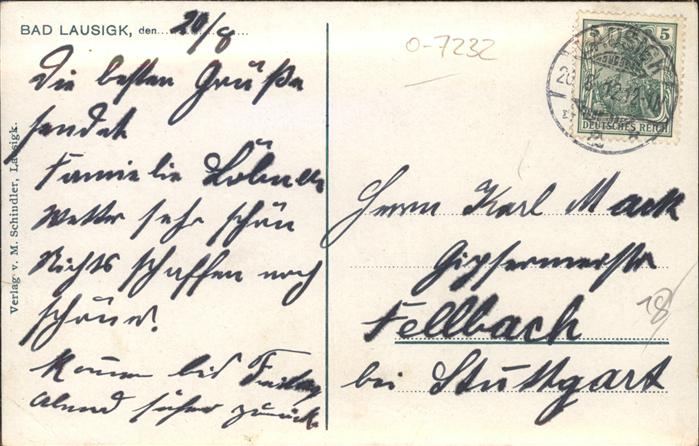 BAD LAUSIGK, den 20/8
O-7232
Die besten Grüße
sendet
Familie
Wetter sehr schön
Nichts schaffen noch
schöner.
Kommen bis Freitag
Abend sicher zurück.
Herrn Karl Mack
Gipsermeister
Fellbach
bei Stuttgart
18
5
DEUTSCHES REICH
LAUSIGK
Verlag v. M. Schindler, Lausigk.